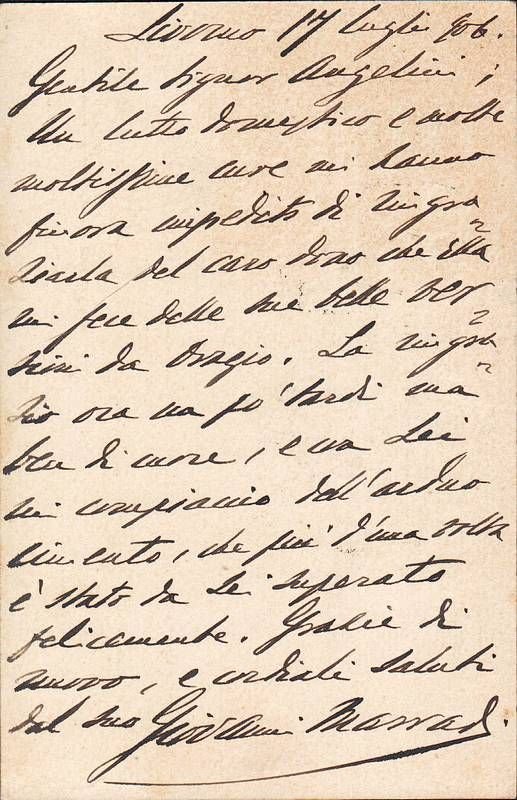 Livorno 17 luglio 906.
Gentile Signor Angelini;
Un lutto domestico e molte
moltissime cure mi hanno
finora impedito di ringra=
ziarla del caro dono che Ella
mi fece delle sue belle ver=
sioni da Orazio. La ringra=
zio ora un po' tardi ma
ben di cuore, e con Lei
mi compiaccio dell'arduo
cimento, che più d'una volta
è stato da Lei superato
felicemente. Grazie di
nuovo, e cordiali saluti
dal suo Giovanni Marradi.